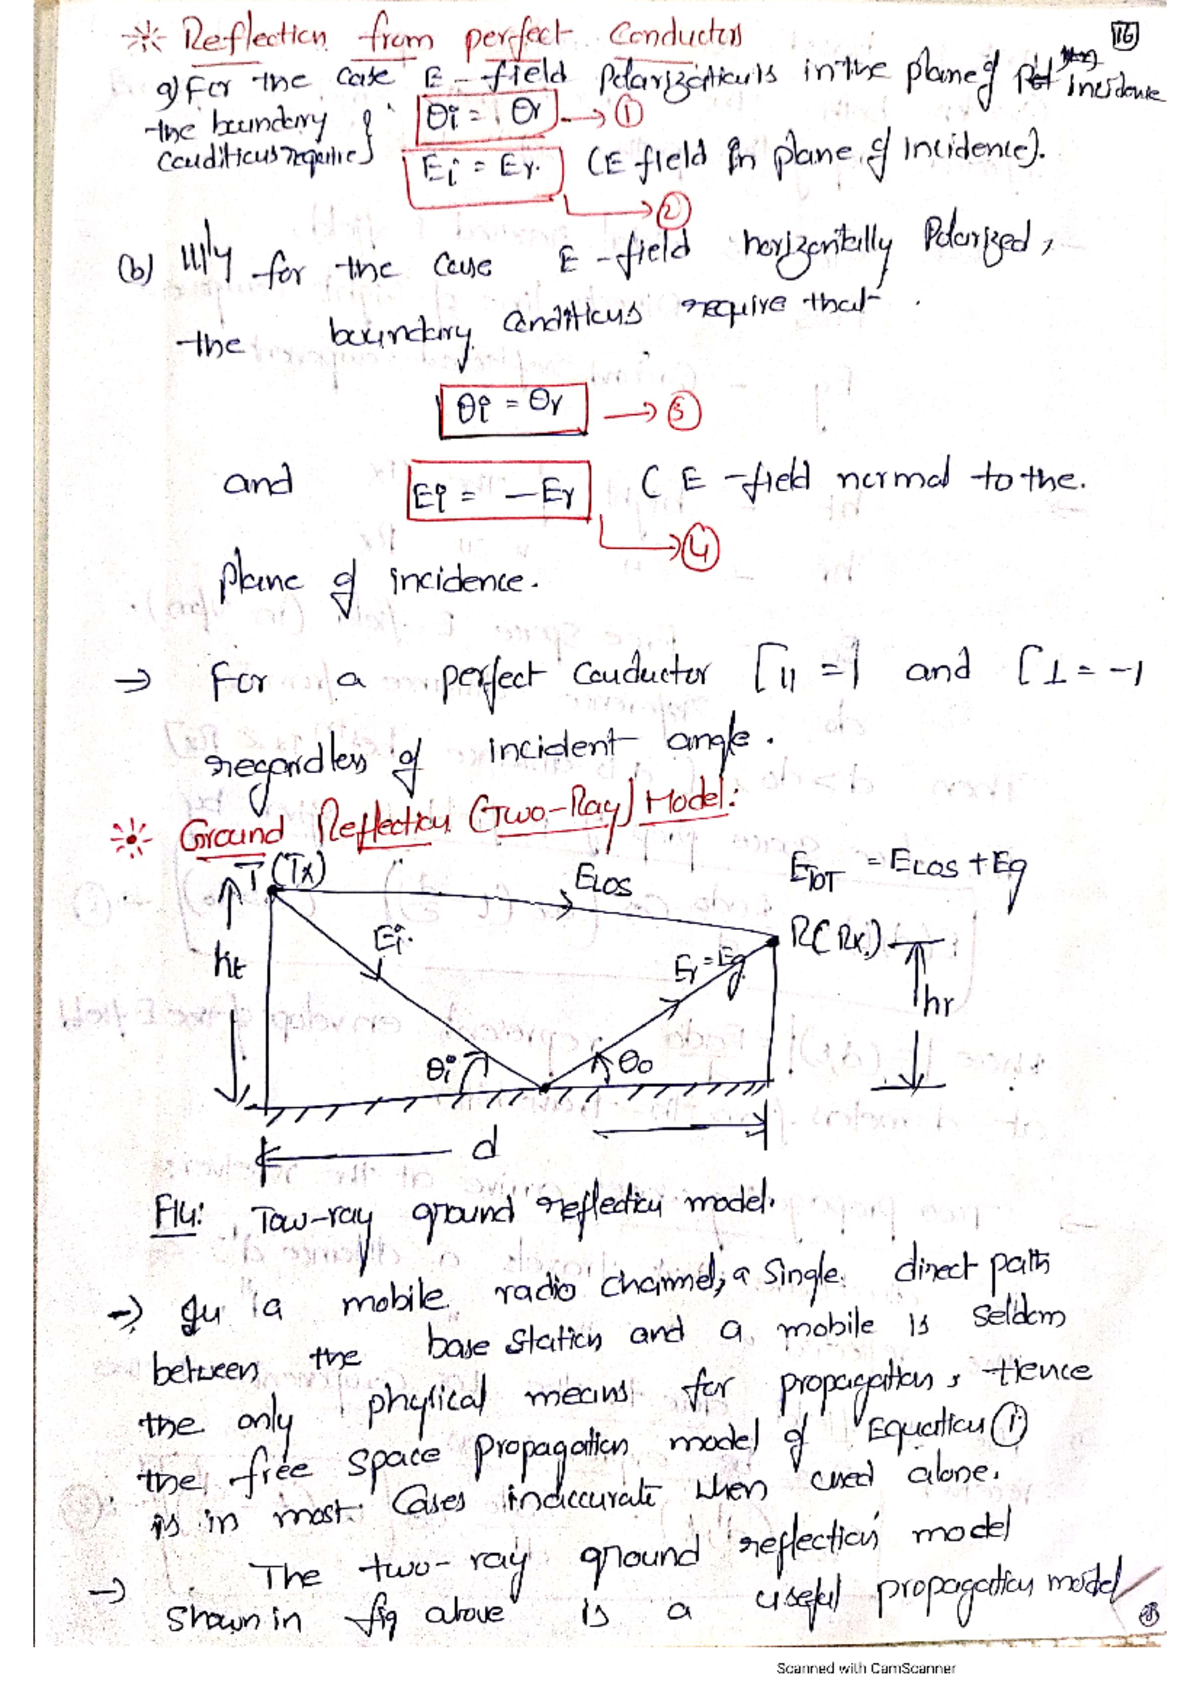 16
Reflection from perfect Conductors
a) For the case E-field Polarization is in the plane of incidence
the boundary conditions require } θi = θr → ①
Ei = Er. (E field in plane of incidence).
→ ②
(b) |||ly for the case E-field horizontally Polarized,
the boundary conditions require that
θi = θr → ③
and Ei = -Er ( E-field normal to the.
→ ④
plane of incidence.
→ For a perfect conductor Γ|| = 1 and Γ⊥ = -1
regardless of incident angle.
Ground Reflection (Two-Ray) Model:
T (Tx)
ELOS
ETOT = ELOS + Eg
Ei
R (Rx)
ht
Er = Eg
hr
θi
θo
d
Fig: Tow-ray ground reflection model.
→ In a mobile radio channel, a single direct path
between the base station and a mobile is seldom
the only physical means for propagation, Hence
the free space propagation model of Equation ①
is in most cases inaccurate when used alone.
→ The two-ray ground reflection model
shown in fig above is a useful propagation model
Scanned with CamScanner